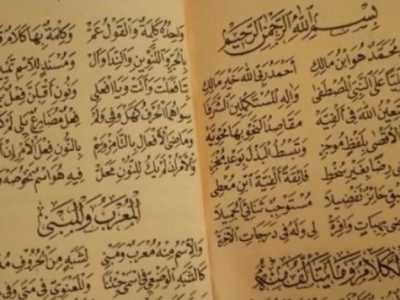 بِسْمِ اللهِ الرَّحْمٰنِ الرَّحِيمِ
مُحَمَّدٌ هُوَ ابْنُ مَالِكِ أَحْمَدُ رَبِّي اللهَ خَيْرَ مَالِكِ
عَلَى النَّبِيِّ الْمُصْطَفَى وَآلِهِ الْمُسْتَكْمِلِينَ الشَّرَفَا
اللهَ فِي أَلْفِيَّهْ مَقَاصِدُ النَّحْوِ بِهَا مَحْوِيَّهْ
الْأَقْصَى بِلَفْظٍ مُوجَزِ وَتَبْسُطُ الْبَذْلَ بِوَعْدٍ مُنْجَزِ
رِضًا بِغَيْرِ سُخْطِ فَائِقَةً أَلْفِيَّةَ ابْنِ مُعْطِي
حَائِزٌ تَفْضِيلَا مُسْتَوْجِبٌ ثَنَائِيَ الْجَمِيلَا
بِهِبَاتٍ وَافِرَهْ لِي وَلَهُ فِي دَرَجَاتِ الْآخِرَهْ
الْكَلَامُ وَمَا يَتَأَلَّفُ مِنْهُ
وَاحِدُهُ كَلِمَةٌ وَالْقَوْلُ عَمّ وَكِلْمَةٌ بِهَا كَلَامٌ
بِالْجَرِّ وَالتَّنْوِينِ وَالنِّدَا وَأَلْ وَمُسْنَدٍ لِلِاسْمِ
بِتَا فَعَلْتَ وَأَتَتْ وَيَا افْعَلِي وَنُونِ أَقْبِلَنَّ فِعْلٌ
سِوَاهُمَا الْحَرْفُ كَهَلْ وَفِي وَلَمْ فِعْلٌ مُضَارِعٌ يَلِي لَمْ
وَمَاضِيَ الْأَفْعَالِ بِالتَّا مِزْ وَسِمْ بِالنُّونِ فِعْلَ الْأَمْرِ إِنْ
وَالْأَمْرُ إِنْ لَمْ يَكُ لِلنُّونِ مَحَلّ فِيهِ هُوَ اسْمٌ نَحْوُ صَهْ
الْمُعْرَبُ وَالْمَبْنِيُّ
وَالِاسْمُ مِنْهُ مُعْرَبٌ وَمَبْنِي لِشَبَهٍ مِنَ الْحُرُوفِ
كَالشَّبَهِ الْوَضْعِيِّ فِي اسْمَيْ جِئْتَنَا وَالْمَعْنَوِيِّ فِي مَتَى